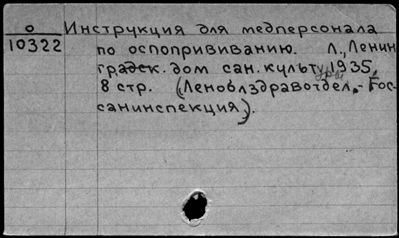 О Инструкция для медперсонала
10322 по оспопрививанию. Л., Ленин
градск. дом сан. культуры 1935,
8 стр. (Леноблздравотдел.- Гос-
санинспекция).